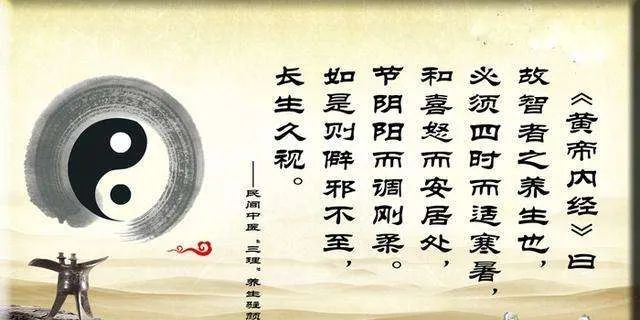 《黄帝内经》曰
故智者之养生也，
必须四时而适寒暑，
和喜怒而安居处，
节阴阳而调刚柔。
如是则僻邪不至，
长生久视。
——民间中医“三理”养生